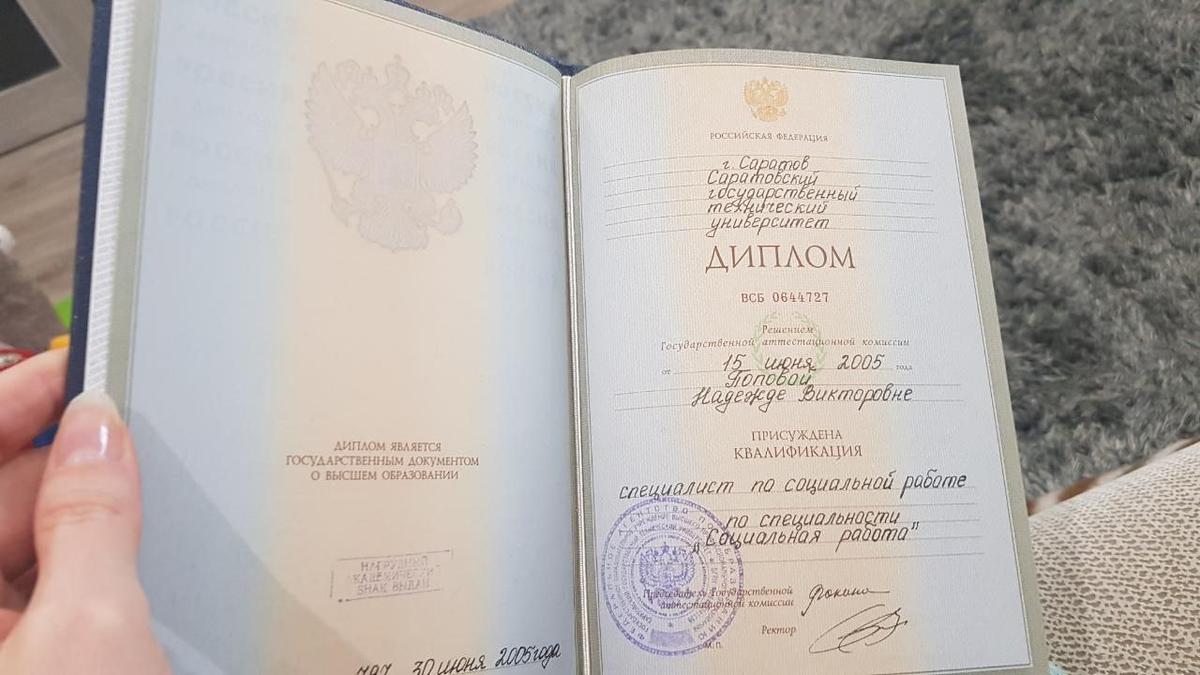 ДИПЛОМ ЯВЛЯЕТСЯ
ГОСУДАРСТВЕННЫМ ДОКУМЕНТОМ
О ВЫСШЕМ ОБРАЗОВАНИИ
НАГРУДНЫЙ
АКАДЕМИЧЕСКИЙ
ЗНАК ВЫДАН
30 июня 2005 года
РОССИЙСКАЯ ФЕДЕРАЦИЯ
г. Саратов
Саратовский
государственный
технический
университет
ДИПЛОМ
ВСБ 0644727
Решением
Государственной аттестационной комиссии
от 15 июня 2005 года
Поповой
Надежде Викторовне
ПРИСУЖДЕНА
КВАЛИФИКАЦИЯ
специалист по социальной работе
по специальности
„Социальная работа"
Председатель Государственной
аттестационной комиссии
Ректор
М.П.